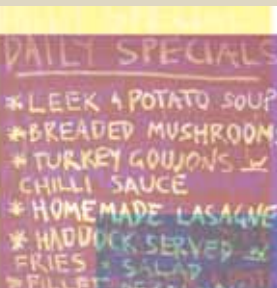 DAILY SPECIALS
* LEEK & POTATO SOUP
* BREADED MUSHROOM
* TURKEY GOUJONS W
CHILLI SAUCE
* HOMEMADE LASAGNE
* HADDOCK SERVED W
FRIES & SALAD
* FILLET